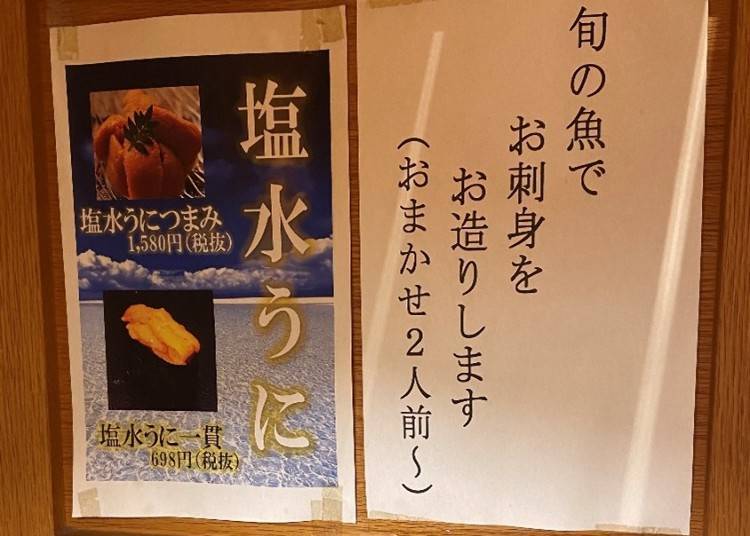 塩水うに
塩水うにつまみ
1,580円(税抜)
塩水うに一貫
698円(税抜)
旬の魚で
お刺身を
お造りします
(おまかせ2人前~)